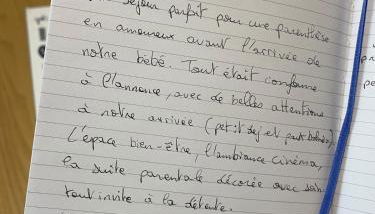 séjour parfait pour une parenthèse
en amoureux avant l'arrivée de
notre bébé. Tout était conforme
à l'annonce, avec de belles attentions
à notre arrivée (petit dej et
L'epace bien-être, l'ambiance cinéma,
la suite parentale décorée avec soin
tout invite à la détente.